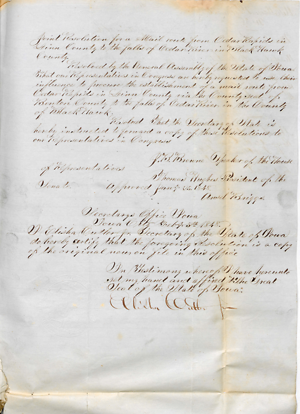 Joint Resolution for a Mail route from Cedar Rapids in
Linn County to the falls of Cedar River in Black Hawk
County
Resolved by the General Assembly of the State of Iowa
that our Representatives in Congress be requested to use their
influence to procure the establishment of a mail route from
Cedar Rapids in Linn County via the County seat of
Benton County to the falls of Cedar River in the County
of Black Hawk
Resolved That the Secretary of State is
hereby instructed to forward a copy of this Resolution to
our Representatives in Congress
Speaker of the House
of Representatives
Thomas Hughes President of the
Senate
Approved
Ansel Briggs
Secretarys Office Iowa
Iowa City
I Elisha Cutler Jr Secretary of the State of Iowa
do hereby certify that the foregoing Resolution is a copy
of the original now on file in this office
In Testimony whereof I have hereunto
set my hand and affixed the Great
Seal of the State of Iowa
Elisha Cutler Jr